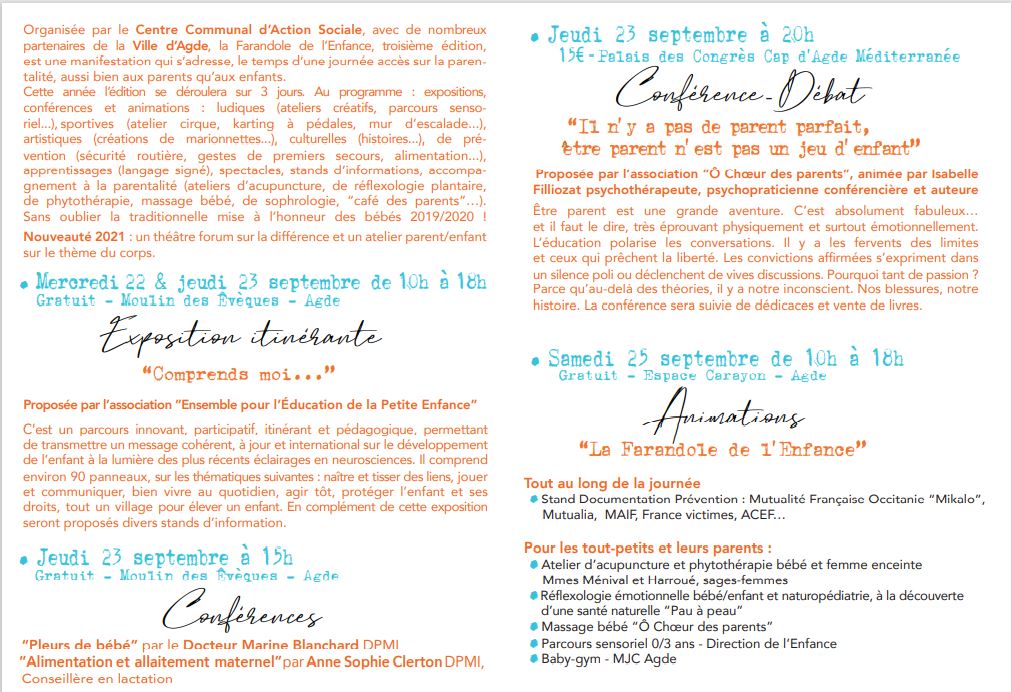 Organisée par le Centre Communal d'Action Sociale, avec de nombreux
partenaires de la Ville d'Agde, la Farandole de l'Enfance, troisième édition,
est une manifestation qui s'adresse, le temps d'une journée accès sur la paren-
talité, aussi bien aux parents qu'aux enfants.
Cette année l'édition se déroulera sur 3 jours. Au programme : expositions,
conférences et animations : ludiques (ateliers créatifs, parcours senso-
riel...), sportives (atelier cirque, karting à pédales, mur d'escalade...),
artistiques (créations de marionnettes...), culturelles (histoires...), de pré-
vention (sécurité routière, gestes de premiers secours, alimentation...),
apprentissages (langage signé), spectacles, stands d'informations, accompa-
gnement à la parentalité (ateliers d'acupuncture, de réflexologie plantaire,
de phytothérapie, massage bébé, de sophrologie, "café des parents"...).
Sans oublier la traditionnelle mise à l'honneur des bébés 2019/2020 !
Nouveauté 2021 : un théâtre forum sur la différence et un atelier parent/enfant
sur le thème du corps.
• Mercredi 22 & jeudi 23 septembre de 10h à 18h
Gratuit - Moulin des Évèques - Agde
Exposition itinérante
"Comprends moi..."
Proposée par l'association "Ensemble pour l'Éducation de la Petite Enfance"
C'est un parcours innovant, participatif, itinérant et pédagogique, permettant
de transmettre un message cohérent, à jour et international sur le développement
de l'enfant à la lumière des plus récents éclairages en neurosciences. Il comprend
environ 90 panneaux, sur les thématiques suivantes : naître et tisser des liens, jouer
et communiquer, bien vivre au quotidien, agir tôt, protéger l'enfant et ses
droits, tout un village pour élever un enfant. En complément de cette exposition
seront proposés divers stands d'information.
• Jeudi 23 septembre à 15h
Gratuit - Moulin des Évèques - Agde
Conférences
"Pleurs de bébé" par le Docteur Marine Blanchard DPMI
"Alimentation et allaitement maternel" par Anne Sophie Clerton DPMI,
Conseillère en lactation
• Jeudi 23 septembre à 20h
15€ - Palais des Congrès Cap d'Agde Méditerranée
Conférence - Débat
"Il n'y a pas de parent parfait,
être parent n'est pas un jeu d'enfant"
Proposée par l'association "Ô Chœur des parents", animée par Isabelle
Filliozat psychothérapeute, psychopraticienne conférencière et auteure
Être parent est une grande aventure. C'est absolument fabuleux...
et il faut le dire, très éprouvant physiquement et surtout émotionnellement.
L'éducation polarise les conversations. Il y a les fervents des limites
et ceux qui prêchent la liberté. Les convictions affirmées s'expriment dans
un silence poli ou déclenchent de vives discussions. Pourquoi tant de passion ?
Parce qu'au-delà des théories, il y a notre inconscient. Nos blessures, notre
histoire. La conférence sera suivie de dédicaces et vente de livres.
• Samedi 25 septembre de 10h à 18h
Gratuit - Espace Carayon - Agde
Animations
"La Farandole de l'Enfance"
Tout au long de la journée
• Stand Documentation Prévention : Mutualité Française Occitanie "Mikalo",
Mutualia, MAIF, France victimes, ACEF...
Pour les tout-petits et leurs parents :
• Atelier d'acupuncture et phytothérapie bébé et femme enceinte
Mmes Ménival et Harroué, sages-femmes
• Réflexologie émotionnelle bébé/enfant et naturopédiatrie, à la découverte
d'une santé naturelle "Pau à peau"
• Massage bébé "Ô Chœur des parents"
• Parcours sensoriel 0/3 ans - Direction de l'Enfance
• Baby-gym - MJC Agde